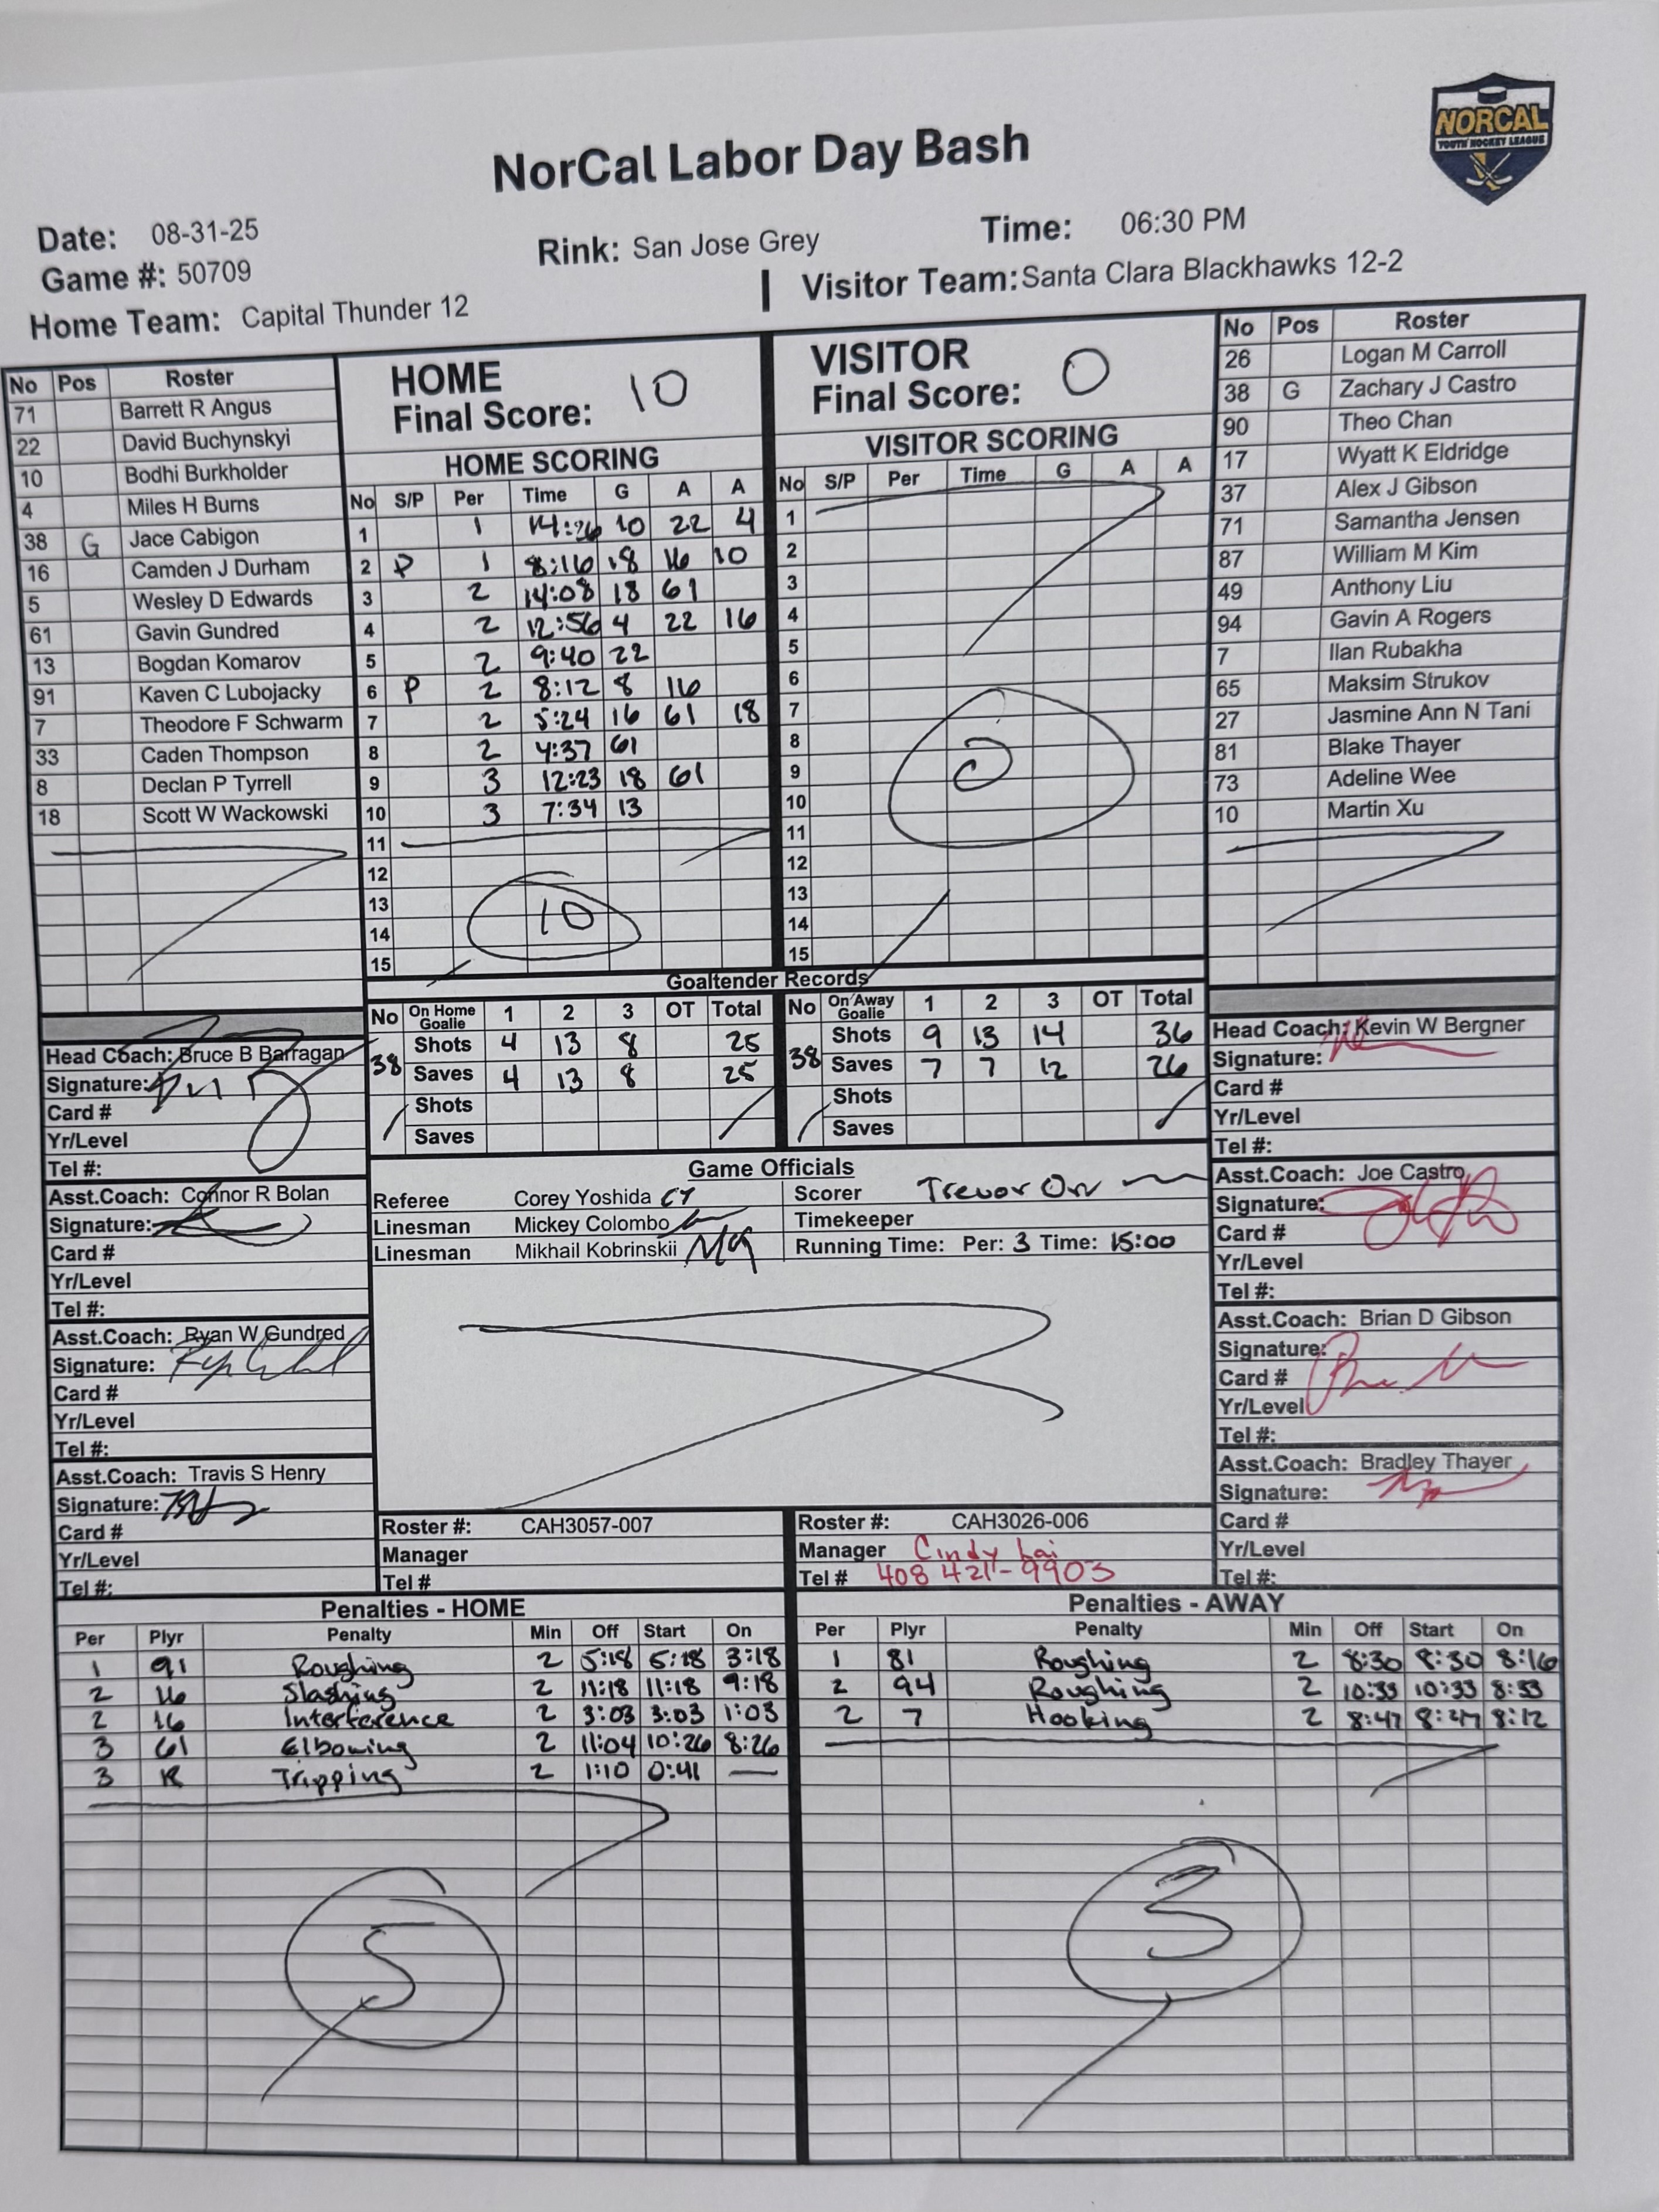 NORCAL
YOUTH HOCKEY LEAGUE
NorCal Labor Day Bash
Date: 08-31-25
Rink: San Jose Grey
Time: 06:30 PM
Game #: 50709
Home Team: Capital Thunder 12
Visitor Team: Santa Clara Blackhawks 12-2
No Pos Roster
71 Barrett R Angus
22 David Buchynskyi
10 Bodhi Burkholder
4 Miles H Burns
38 G Jace Cabigon
16 Camden J Durham
5 Wesley D Edwards
61 Gavin Gundred
13 Bogdan Komarov
91 Kaven C Lubojacky
7 Theodore F Schwarm
33 Caden Thompson
8 Declan P Tyrrell
18 Scott W Wackowski
HOME
Final Score: 10
HOME SCORING
No S/P Per Time G A A
1 1 14:26 10 22 4
2 P 1 8:16 18 16 10
3 2 14:08 18 61
4 2 12:56 4 22 16
5 2 9:40 22
6 P 2 8:12 8 16
7 2 5:24 16 61 18
8 2 4:37 61
9 3 12:23 18 61
10 3 7:34 13
11
12
13
14
15
10
VISITOR
Final Score: 0
VISITOR SCORING
No S/P Per Time G A A
1
2
3
4
5
6
7
8
9
10
11
12
13
14
15
0
No Pos Roster
26 Logan M Carroll
38 G Zachary J Castro
90 Theo Chan
17 Wyatt K Eldridge
37 Alex J Gibson
71 Samantha Jensen
87 William M Kim
49 Anthony Liu
94 Gavin A Rogers
7 Ilan Rubakha
65 Maksim Strukov
27 Jasmine Ann N Tani
81 Blake Thayer
73 Adeline Wee
10 Martin Xu
Goaltender Records
No On Home Goalie 1 2 3 OT Total
38 Shots 4 13 8 25
Saves 4 13 8 25
Shots
Saves
No On Away Goalie 1 2 3 OT Total
38 Shots 9 13 14 36
Saves 7 7 12 26
Shots
Saves
Head Coach: Bruce B Barragan
Signature:
Card #
Yr/Level
Tel #:
Asst.Coach: Connor R Bolan
Signature:
Card #
Yr/Level
Tel #:
Asst.Coach: Ryan W Gundred
Signature:
Card #
Yr/Level
Tel #:
Asst.Coach: Travis S Henry
Signature:
Card #
Yr/Level
Tel #:
Game Officials
Referee Corey Yoshida CY
Linesman Mickey Colombo
Linesman Mikhail Kobrinskii MK
Scorer Trevor Orr
Timekeeper
Running Time: Per: 3 Time: 15:00
Roster #: CAH3057-007
Manager
Tel #
Roster #: CAH3026-006
Manager Cindy Lai
Tel # 408 421-9903
Head Coach: Kevin W Bergner
Signature:
Card #
Yr/Level
Tel #:
Asst.Coach: Joe Castro
Signature:
Card #
Yr/Level
Tel #:
Asst.Coach: Brian D Gibson
Signature:
Card #
Yr/Level
Tel #:
Asst.Coach: Bradley Thayer
Signature:
Card #
Yr/Level
Tel #:
Penalties - HOME
Per Plyr Penalty Min Off Start On
1 91 Roughing 2 5:18 5:18 3:18
2 16 Slashing 2 11:18 11:18 9:18
2 16 Interference 2 3:03 3:03 1:03
3 61 Elbowing 2 11:04 10:26 8:26
3 Tripping 2 1:10 0:41 —
5
Penalties - AWAY
Per Plyr Penalty Min Off Start On
1 81 Roughing 2 8:30 8:30 8:16
2 94 Roughing 2 10:33 10:33 8:33
2 7 Hooking 2 8:47 8:47 8:12
3